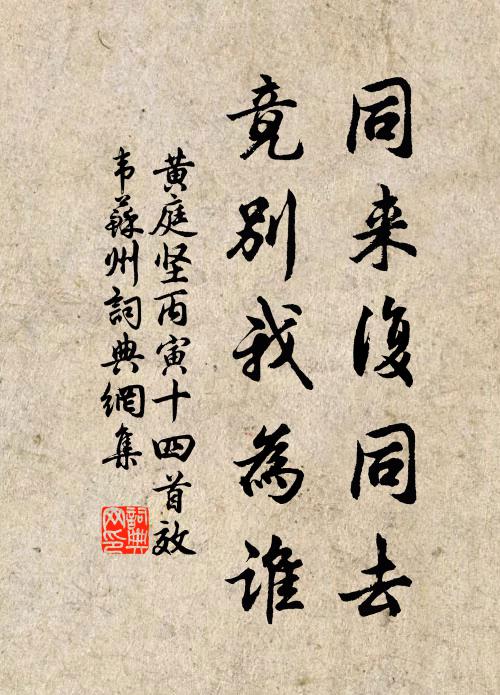 同来復同去
竟別我為谁
黄庭坚丙寅十四首效
韦蘇州詞典網集
詞典
网印